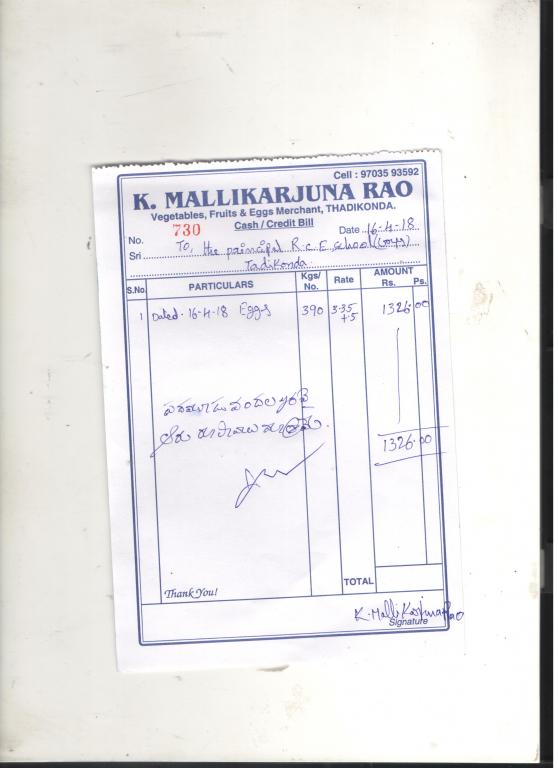 Cell : 97035 93592
K. MALLIKARJUNA RAO
Vegetables, Fruits & Eggs Merchant, THADIKONDA.
730 Cash / Credit Bill
No. Date 16-4-18
Sri To, the principal R.C.E. School (Boys)
Tadikonda.
S.No. PARTICULARS Kgs/ No. Rate AMOUNT Rs. Ps.
1 Dated. 16-4-18 Eggs 390 3.35 1326.00
+.5
1326.00
TOTAL
Thank You!
K. Mallikarjuna Rao
Signature